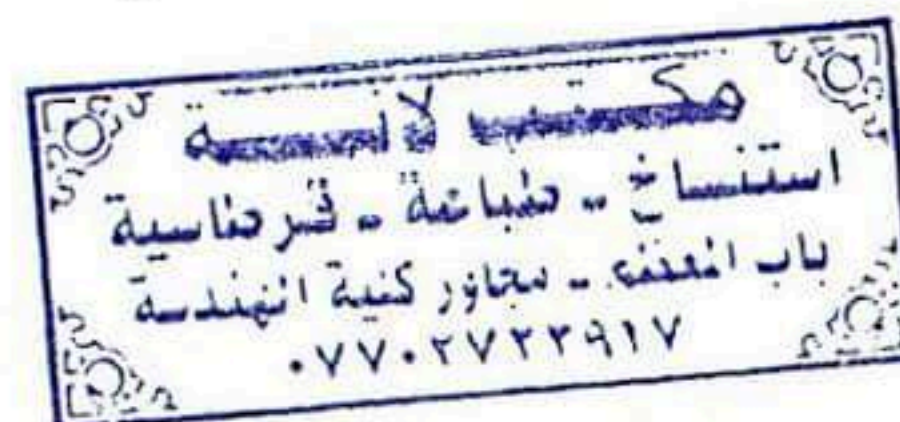 مكتب لانسة
استنساخ - طباعة - قرطاسية
باب المعظم - مجاور كلية الهندسة
٠٧٧٠٢٧٣٣٩١٧